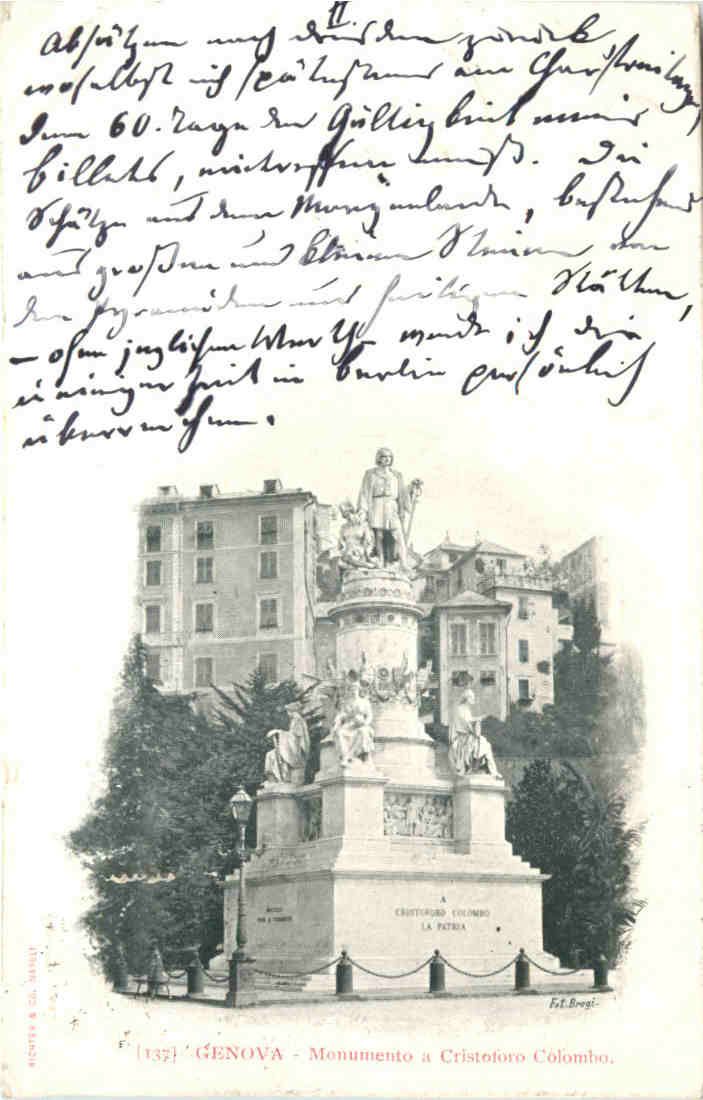 II
Absätzen nach Dresden zurück
woselbst ich spätestens am Charfreitag,
dem 60. Tage der Gültigkeit meines
billets, eintreffen muß. Die
Schätze aus dem Morgenlande, bestehend
aus großen und kleinen Steinen von
den Pyramiden und heiligen Stätten,
- ohne jeglichen Werth werde ich dir
in einiger Zeit in Berlin persönlich
überreichen.
A
CRISTOFORO COLOMBO
LA PATRIA
Fot. Brogi-
RICHTER & CO. NAPOLI
[137] GENOVA - Monumento a Cristoforo Colombo.